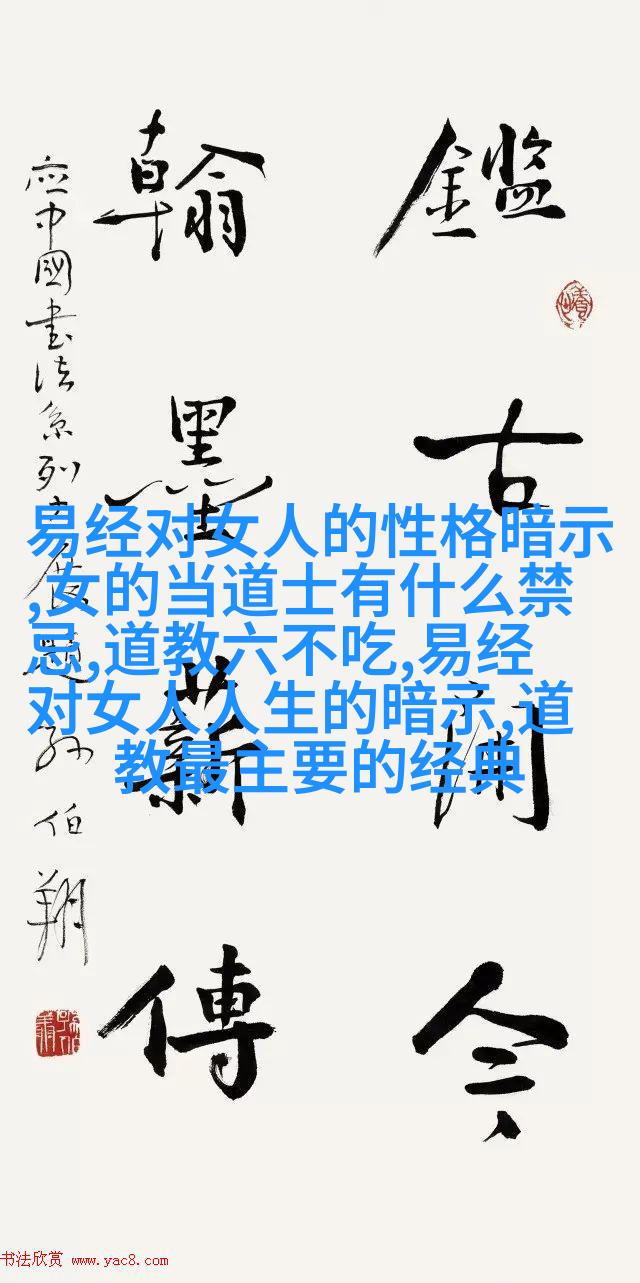 鑑古開今
翰墨薪傳
应中國書法系列大展題 孙伯翔
易经对女人的性格暗示
,女的当道士有什么禁
忌,道教六不吃,易经
对女人人生的暗示,道
教最主要的经典
书法欣赏 www.yac8.com